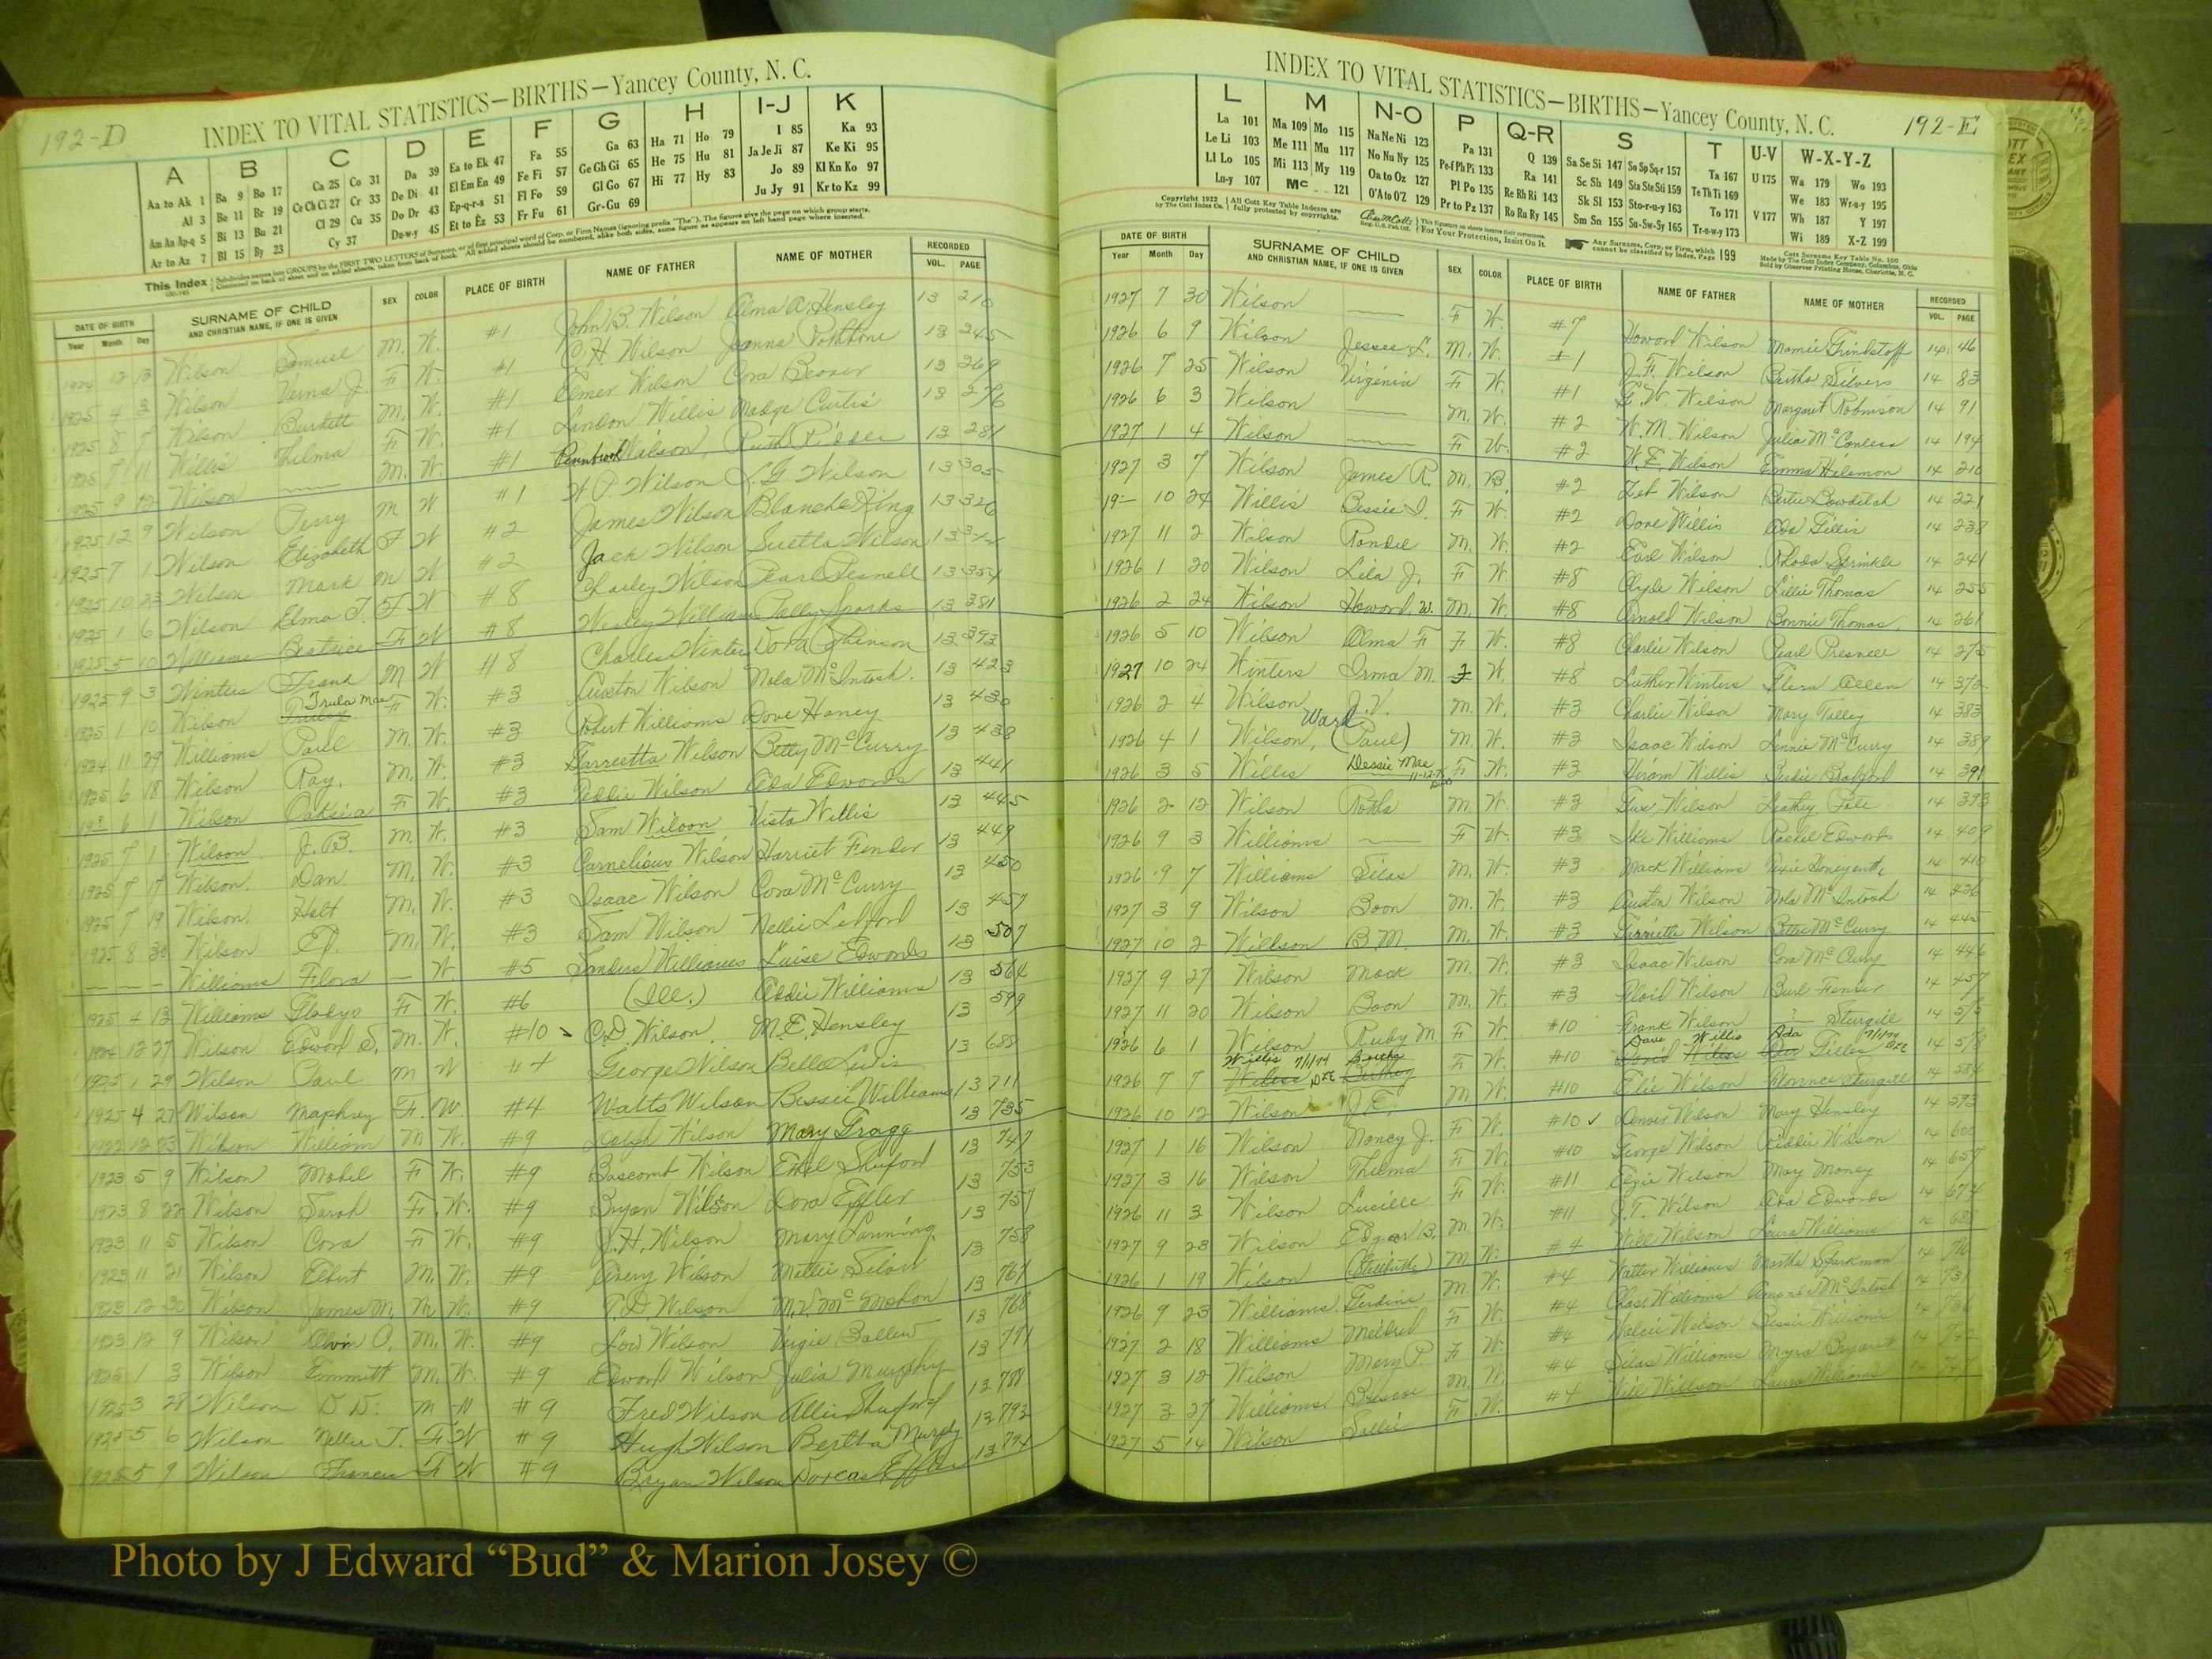 192-D
INDEX TO VITAL STATISTICS—BIRTHS—Yancey County, N. C.
A B C D E F G H I-J K
Aa to Ak 1 Ba 9 Bo 17 Ca 25 Co 31 Da 39 Ea to Ek 47 Fa 55 Ga 63 Ha 71 Ho 79 I 85 Ka 93
Al 3 Be 11 Br 19 Ce Ch Ci 27 Cr 33 De Di 41 El Em En 49 Fe Fi 57 Ge Gh Gi 65 He 75 Hu 81 Ja Je Ji 87 Ke Ki 95
Am An Ap-q 5 Bi 13 Bu 21 Cl 29 Cu 35 Do Dr 43 Ep-q-r-s 51 Fl Fo 59 Gl Go 67 Hi 77 Hy 83 Jo 89 Kl Kn Ko 97
Ar to Az 7 Bl 15 By 23 Cy 37 Du-w-y 45 Et to Ez 53 Fr Fu 61 Gr-Gu 69 Ju Jy 91 Kr to Kz 99
This Index Subdivides names into GROUPS by the FIRST TWO LETTERS of Surname, or of first principal word of Corp. or Firm Names (ignoring prefix "The"). The figures give the page on which group starts.
DATE OF BIRTH SURNAME OF CHILD SEX COLOR PLACE OF BIRTH NAME OF FATHER NAME OF MOTHER RECORDED
Year Month Day AND CHRISTIAN NAME, IF ONE IS GIVEN VOL. PAGE
1924 12 13 Wilson Samuel M. W. #1 John B. Wilson Alma A. Hensley 13 210
1925 4 3 Wilson Verna J. F W. #1 C. H. Wilson 13 245
1925 8 7 Wilson Burdett M. W. #1 Elmer Wilson Cora Beaver 13 269
1925 7 11 Willis Thelma F W. #1 Landon Willis Madge Curtis 13 276
1925 9 12 Wilson —— M. W. #1 Wilson, Ruth 13 281
1925 12 9 Wilson Perry M W #1 W. P. Wilson L. G. Wilson 13 305
1925 7 1 Wilson Elizabeth F W #2 James Wilson Blanche King 13 326
1925 10 23 Wilson Mark M W #2 Jack Wilson Suetta Wilson 13 344
1925 1 6 Wilson Elma J. F W #8 Charley Wilson Pearl Presnell 13 354
1925 5 10 Williams Beatrice F W #8 Wesley Williams Polly Sparks 13 381
1925 9 3 Winters M W #8 Charles Winters Dora 13 393
1925 1 10 Wilson Trula Mae F W. #3 Wilson Nola McIntosh. 13 423
1924 11 29 Williams Paul M. W. #3 Robert Williams Dove Haney 13 430
1925 6 18 Wilson Ray. M. W. #3 Garreetta Wilson Betty McCurry 13 438
6 1 Wilson F W. #3 Wilson Ada Edwards 13 441
1925 7 1 Wilson J. B. M. W. #3 Sam Wilson, Vista Willis 13 445
1925 7 17 Wilson. Dan M. W. #3 Carnelious Wilson Harriet Fender 13 449
1925 7 19 Wilson. Holt M. W. #3 Isaac Wilson Cora McCurry 13 450
1925 8 30 Wilson Ed. M. W. #3 Sam Wilson Nellie Ledford 13 457
— — — Williams Flora — W #5 Sanders Williams Luise Edwards 13 507
1925 4 13 Williams Gladys F W. #6 (Ill.) Addie Williams 13 564
1924 12 27 Wilson Edward S. M. W. #10 C. D. Wilson. M. E. Hensley 13 599
1925 1 29 Wilson Paul M W #4 George Wilson Belle Lewis 13 688
1925 4 27 Wilson Maphrey F. W. #4 Watts Wilson Bessie Williams 13 711
1922 12 23 Wilson William M W. #9 Wilson Mary Gragg 13 735
1923 5 9 Wilson Mabel F W. #9 Bascomb Wilson Ethel Shuford 13 747
1923 8 22 Wilson Sarah F. W. #9 Bryan Wilson Dora Effler 13 753
1923 11 5 Wilson Cora F W. #9 J. H. Wilson Mary Lanning. 13 757
1923 11 21 Wilson Elbert M. W. #9 Avery Wilson Mollie Silver 13 758
1923 12 30 Wilson James M. M W. #9 T. D. Wilson M. V. McMahon 13 767
1923 12 9 Wilson Alvin C. M. W. #9 Wilson Virgie Ballew 13 768
1925 1 3 Wilson Emmett M. W. #9 Edward Wilson Julia Murphy 13 771
1925 3 28 Wilson D. D. M W #9 Fred Wilson Allie Shuford 13 788
1925 5 6 Wilson Nellie J. F W #9 Hugh Wilson Bertha Murphy 13 793
1925 5 9 Wilson Francis F W #9 Bryan Wilson Dorcas Effler 13 794
192-E
INDEX TO VITAL STATISTICS—BIRTHS—Yancey County, N. C.
L M N-O P Q-R S T U-V W-X-Y-Z
La 101 Ma 109 Mo 115 Na Ne Ni 123 Pa 131 Q 139 Sa Se Si 147 So Sp Sq-r 157 Ta 167 U 175 Wa 179 Wo 193
Le Li 103 Me 111 Mu 117 No Nu Ny 125 Pe-f Ph Pi 133 Ra 141 Sc Sh 149 Sta Ste Sti 159 Te Th Ti 169 We 183 Wr-u-y 195
Ll Lo 105 Mi 113 My 119 Oa to Oz 127 Pl Po 135 Re Rh Ri 143 Sk Sl 153 Sto-r-u-y 163 To 171 V 177 Wh 187 Y 197
Lu-y 107 Mc 121 O'A to O'Z 129 Pr to Pz 137 Ro Ru Ry 145 Sm Sn 155 Su-Sw-Sy 165 Tr-u-w-y 173 Wi 189 X-Z 199
Copyright 1922 by The Cott Index Co. All Cott Key Table Indexes are fully protected by copyrights. For Your Protection, Insist On It. Any Surname, Corp. or Firm, which cannot be classified by Index, Page 199
Cott Surname Key Table No. 100
Made by The Cott Index Company, Columbus, Ohio
Sold by Observer Printing House, Charlotte, N. C.
DATE OF BIRTH SURNAME OF CHILD SEX COLOR PLACE OF BIRTH NAME OF FATHER NAME OF MOTHER RECORDED
Year Month Day AND CHRISTIAN NAME, IF ONE IS GIVEN VOL. PAGE
1927 7 30 Wilson —— F W. #7 Howard Wilson Mamie Grindstaff 14 46
1926 6 9 Wilson Jessee L. M. W. #1 J. F. Wilson Bertha Silvers 14 83
1926 7 25 Wilson Virginia F W. #1 G. W. Wilson Margaret Robinson 14 91
1926 6 3 Wilson —— M. W. #2 W. M. Wilson Julia McCanless 14 194
1927 1 4 Wilson —— F W. #2 W. E. Wilson Emma Hilemon 14 210
1927 3 7 Wilson James R. M. B. #2 Zeb Wilson Bertie Bowditch 14 221
19— 10 24 Willis Bessie I. F W. #2 Dove Willis Ada Gillis 14 238
1927 11 2 Wilson Rondel M. W. #2 Earl Wilson Rhoda Sprinkle 14 241
1926 1 20 Wilson Lila J. F W. #8 Clyde Wilson Lillie Thomas 14 255
1926 2 24 Wilson Howard. W. M. W. #8 Arnold Wilson Bonnie Thomas. 14 261
1926 5 10 Wilson Alma F F W. #8 Charlie Wilson Pearl Presnell 14 275
1927 10 24 Winters Irma M. F W. #8 Luther Winters Flora Allen 14 372
1926 2 4 Wilson J. V. M. W. #3 Charlie Wilson Mary Talley 14 383
1926 4 1 Wilson, Ward (Paul) M. W. #3 Isaac Wilson Linnie McCurry 14 389
1926 3 5 Willis Dessie Mae F W. #3 Hiram Willis 14 391
1926 2 12 Wilson M. W. #3 Wilson Leathey Pate 14 393
1926 9 3 Williams —— F W. #3 Ike Williams Rachel Edwards 14 409
1926 9 7 Williams Silas M. W. #3 Mack Williams 14 410
1927 3 9 Wilson Boon M. W. #3 Austin Wilson Nola McIntosh 14 426
1927 10 2 Willson B. M. M. W. #3 Wilson Bettie McCurry 14 445
1927 9 27 Wilson Mack M. W. #3 Isaac Wilson Cora McCurry 14 446
1927 11 20 Wilson Boon M. W. #3 Floid Wilson Burl Fender 14 457
1926 6 1 Wilson Ruby M. F W. #10 Frank Wilson ? Sturgill 14 575
1926 7 7 Willis 7/1/74 F W. #10 Dave Willis Ada 14 578
1926 10 12 Wilson J. E. M W. #10 Wilson Florence Sturgill 14 584
1927 1 16 Wilson Nancy J. F W. #10 ✓ Denver Wilson Mary Hensley 14 593
1927 3 16 Wilson Thelma F W. #10 George Wilson Wilson 14 602
1926 11 3 Wilson Lucille F W. #11 Wilson May Money 14 657
1927 9 23 Wilson Edgar B. M W. #11 J. T. Wilson Ada Edwards 14 674
1926 1 19 Wilson (Stillbirth) M W. #4 Will Wilson Laura Williams 14 688
1926 9 23 Williams. M. W. #4 Walter Williams Martha Sparkman 14
1927 2 18 Williams Mildred F W. #4 Chas. Williams McIntosh 14 731
1927 3 12 Wilson Mary P. F W. #4 Wilson Bessie Williams 14
1927 3 27 Williams M. W. #4 Silas Williams Myra Bryant 14
1927 5 14 Wilson Sallie F W. #4 Will Willson Laura Williams 14
Photo by J Edward “Bud” & Marion Josey ©